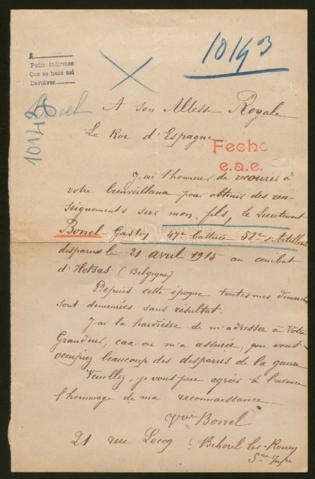 10143
A
Pedir informes
Que se haga así
Devolver
10143
Bonel
A son Altesse Royale
Le Roi d'Espagne
Fecho
e.a.e.
J'ai l'honneur de recourir à
votre bienveillance pour obtenir des ren-
seignements sur mon fils, le Lieutenant
Bonel Gaston 47e batterie d'Artillerie
disparu le 21 avril 1915 au combat
d' (Belgique)
Depuis cette époque toutes mes démarches
sont demeurées sans résultat.
J'ai la hardiesse de m'adresser à Votre
Grandeur, car on m'a assurée, que vous
occupiez beaucoup des disparus de la guerre
Veuillez, je vous prie agréer à l'avance
l'hommage de ma reconnaissance
Vve Bonel
21 rue Lecoq